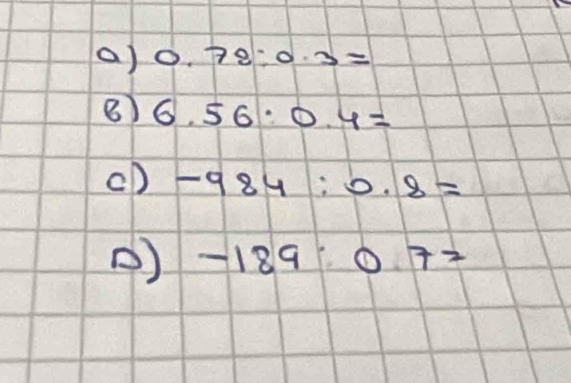 a) 0.78:0.3=
B) 6.56:0.4=
C) -984:0.8=
D) -189:0.7=